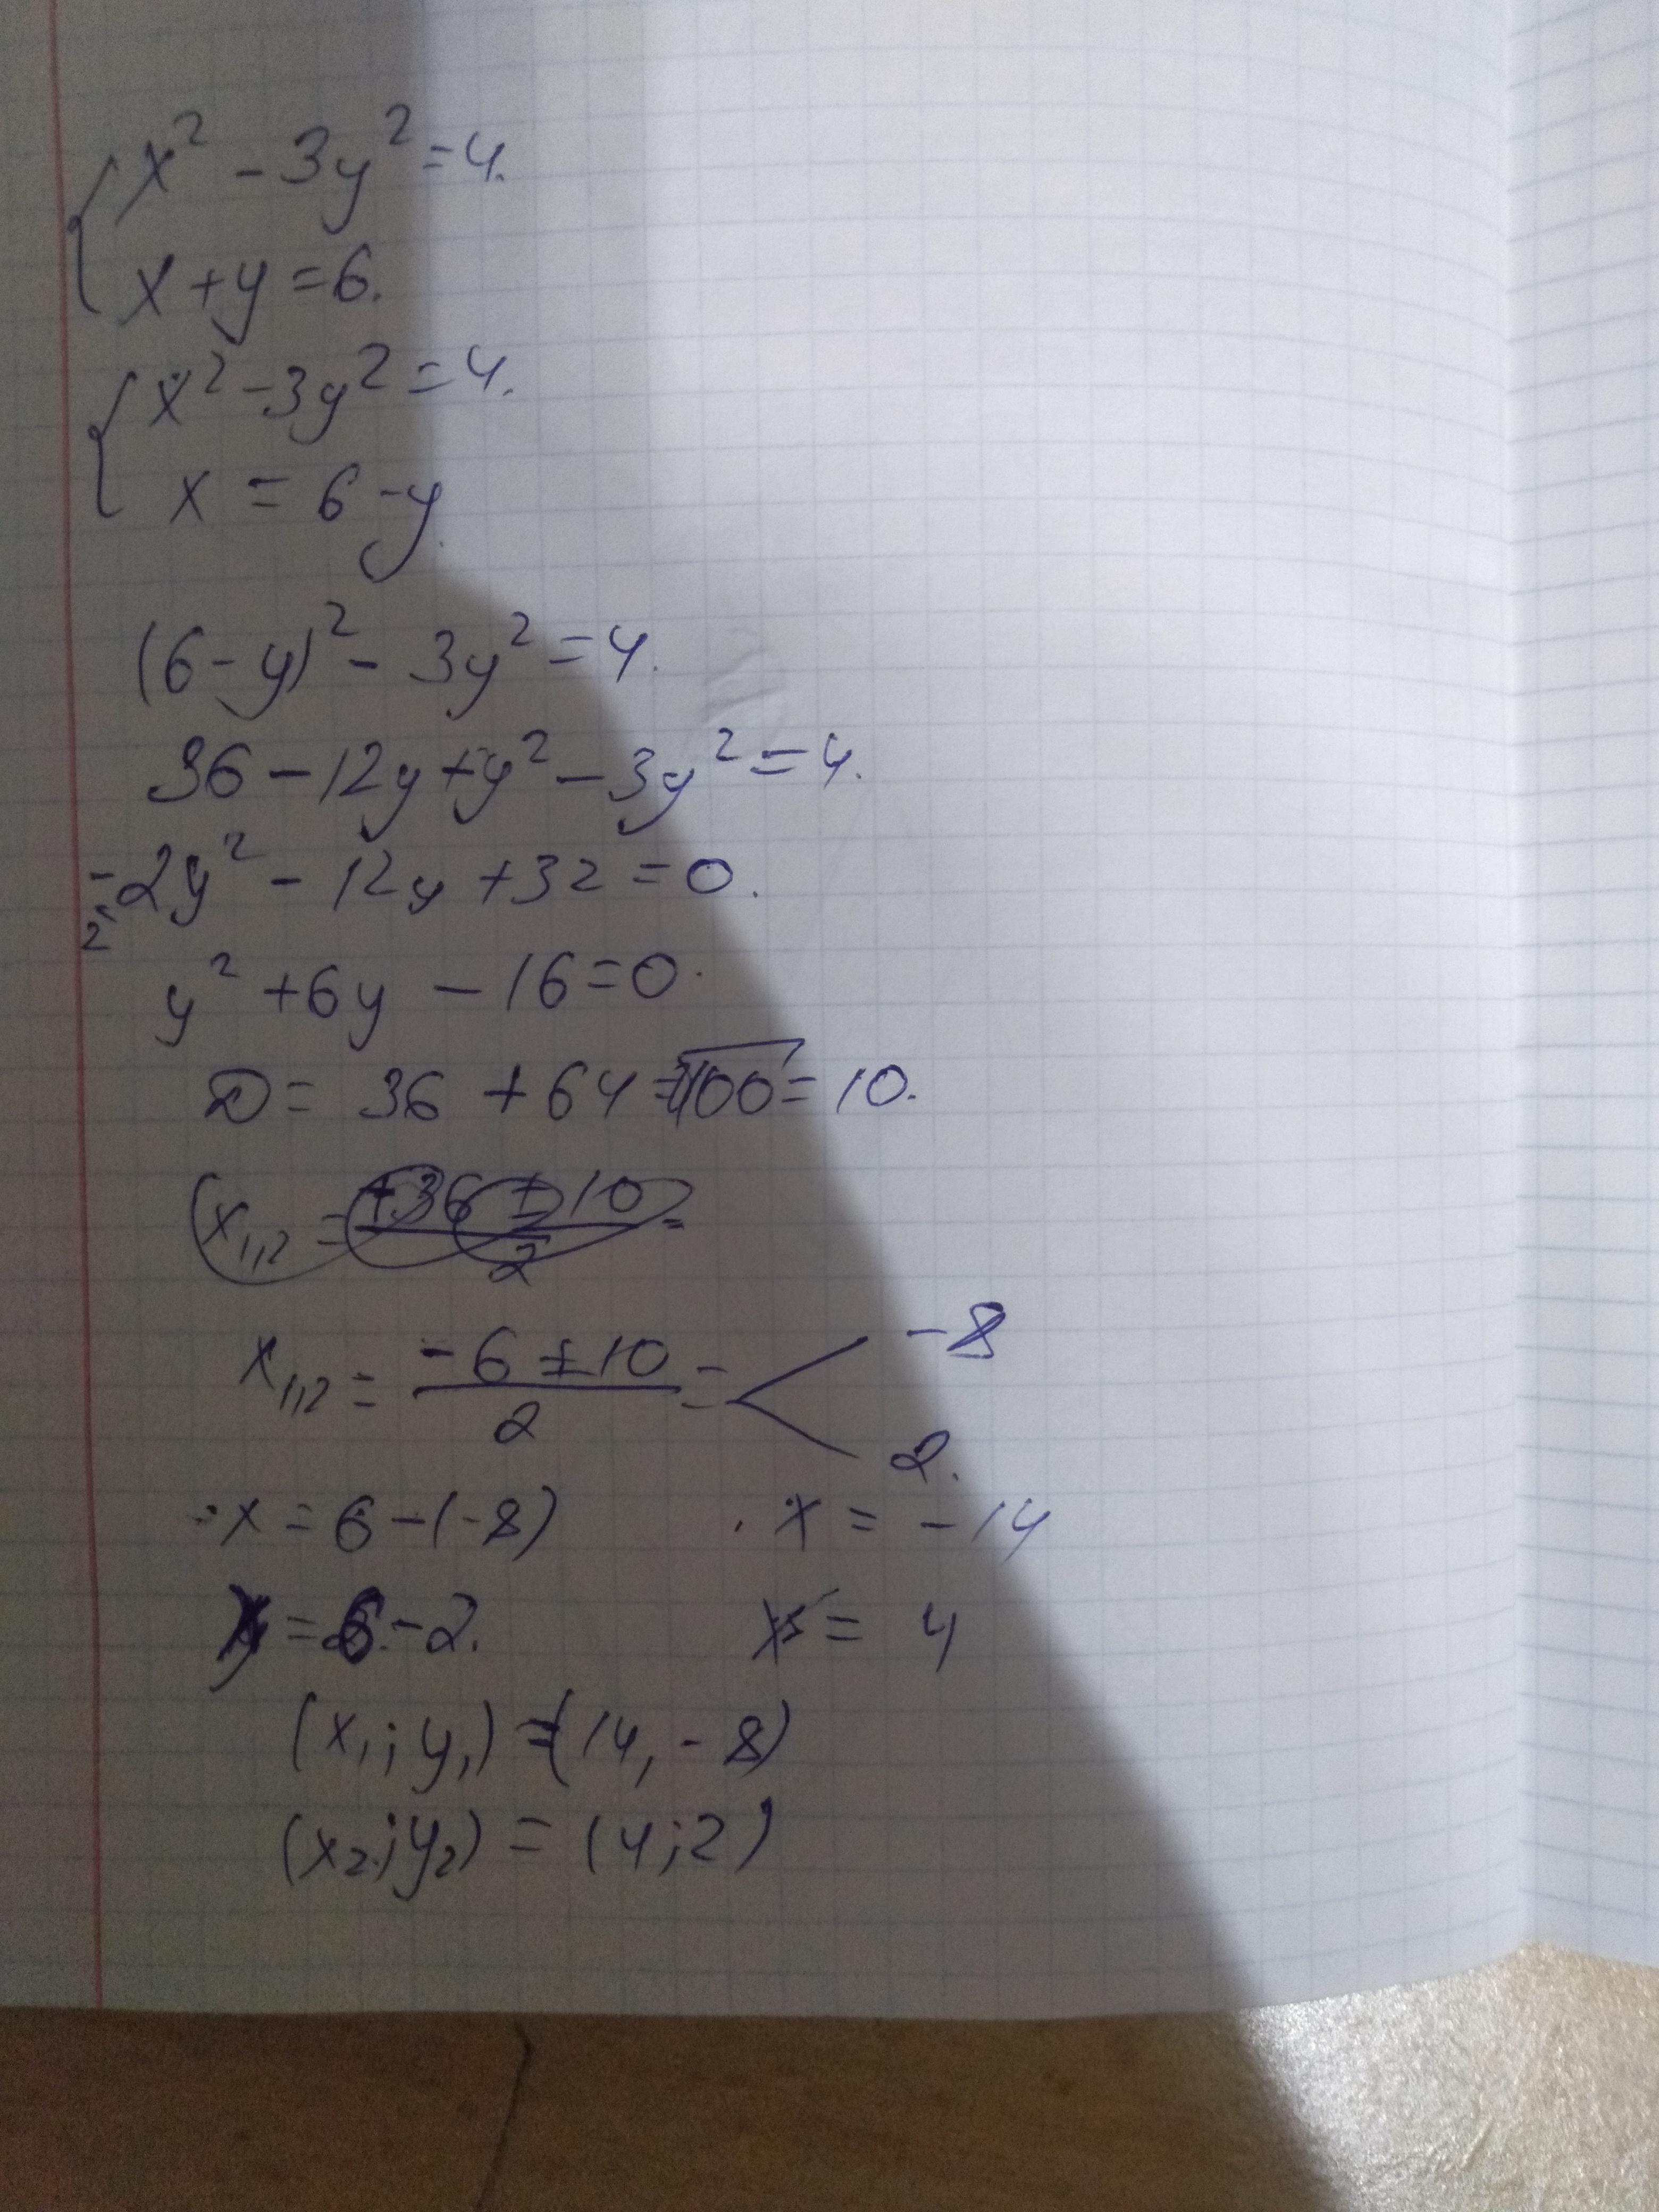 { x² - 3y² = 4.
x + y = 6.
{ x² - 3y² = 4.
x = 6 - y
(6 - y)² - 3y² = 4.
36 - 12y + y² - 3y² = 4.
-2y² - 12y + 32 = 0.
y² + 6y - 16 = 0.
D = 36 + 64 = √100 = 10.
x₁,₂ = (-6 ± 10)/2 = < -8
2.
x = 6 - (-8) x = -14
= 6 - 2. x = 4
(x₁; y₁) = (14, -8)
(x₂; y₂) = (4; 2)